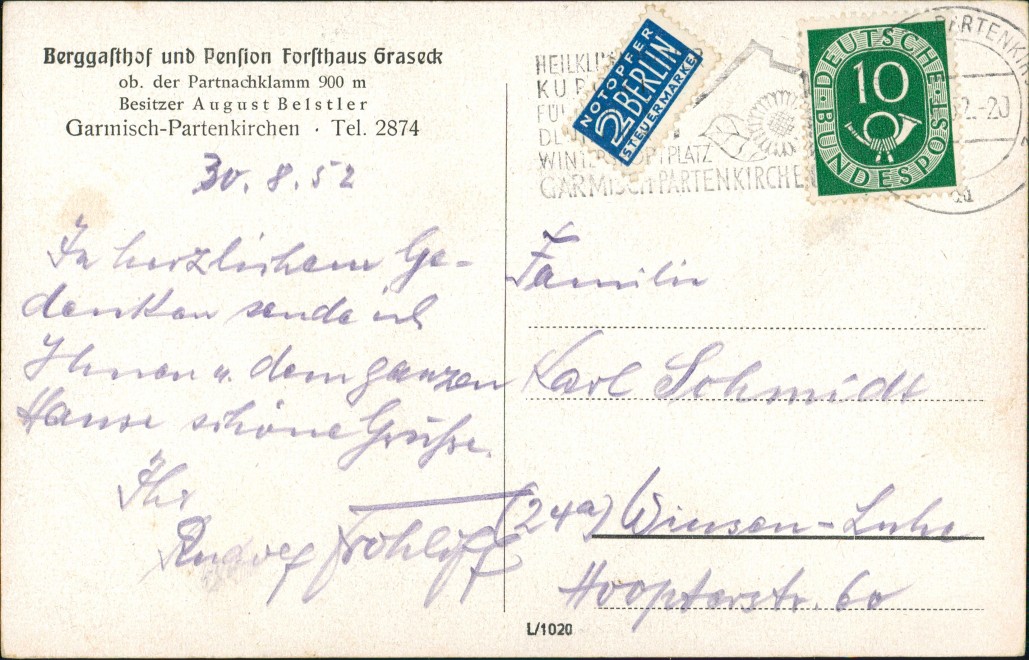 Berggasthof und Pension Forsthaus Graseck
ob. der Partnachklamm 900 m
Besitzer August Beistler
Garmisch-Partenkirchen · Tel. 2874
30.8.52
In herzlichem Ge-
denken sende ich
Ihnen u. dem ganzen
Hause schöne Grüße.
Ihr
Rudolf
HEILKLI
KUR
FÜ
DE
WINTER PLATZ
GARMISCH PARTENKIRCHE
NOTOPFER
2 BERLIN
STEUERMARKE
DEUTSCHE
10
BUNDESPOST
PARTENKIR
52.-20
Familie
Karl Schmidt
(24a) Winsen-Luhe
Hoopterstr. 60
L/1020